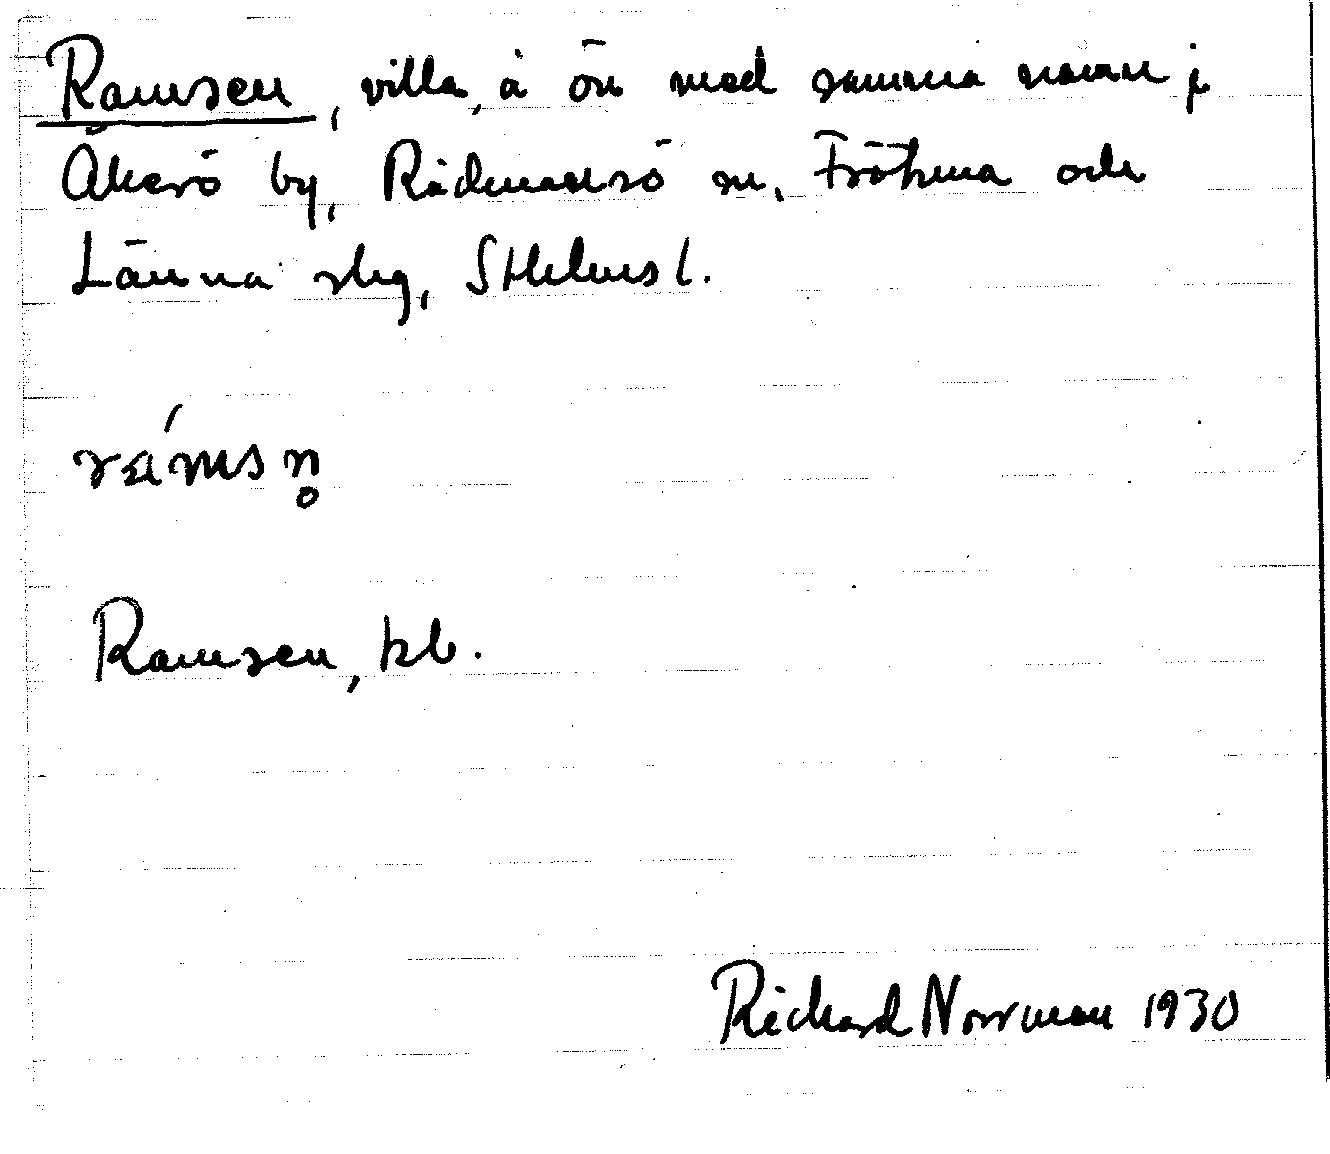 Ramsen, villa, å ön med samma namn i
Åkerö by, Rådmansö sn, Frötuna och
Länna slg, Sthlms l.
rámsn̥
Ramsen, kb.
Richard Norrman 1930